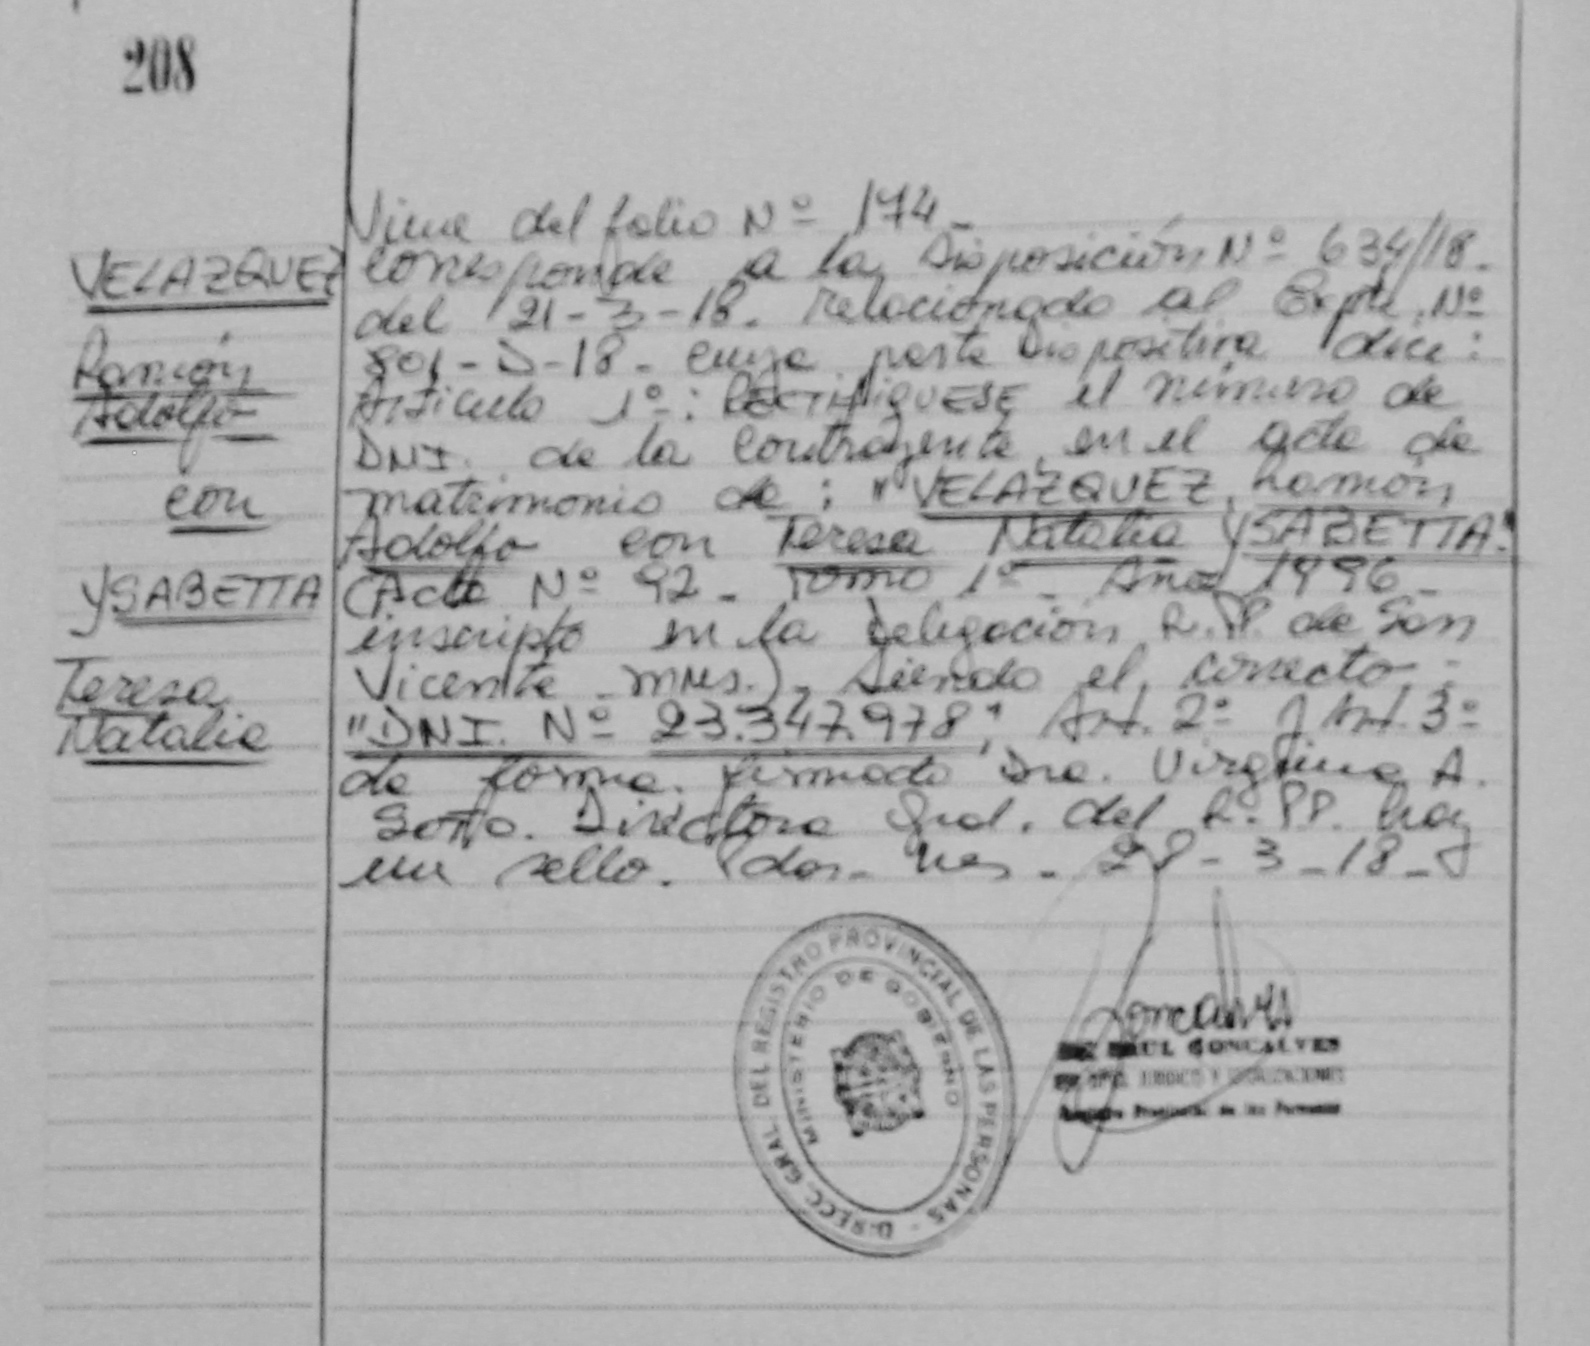 208
Viene del folio Nº 174-
VELAZQUEZ
Ramón
Adolfo
con
YSABETTA
Teresa
Natalia
corresponde a la Disposición Nº 634/18-
del 21-3-18. relacionado al Expte. Nº
801-D-18- cuya parte Dispositiva dice:
Articulo 1º: RECTIFIQUESE el número de
DNI. de la contrayente en el acta de
matrimonio de: "VELAZQUEZ, Ramón
Adolfo con Teresa Natalia YSABETTA."
(Acta Nº 92- Tomo 1º- Año 1996-
inscripto en la Delegación R.PP. de San
Vicente -Mnes.)- Siendo el correcto-
"DNI. Nº 23.347.978". Art. 2º y Art. 3º
de forma. firmado Dra. Virginia A.
Directora Gral. del R.PP. hay
un sello. Pdas. Mnes- 28-3-18-
DIRECC. GRAL. DEL REGISTRO PROVINCIAL DE LAS PERSONAS -
MINISTERIO DE GOBIERNO
RAUL GONCALVES
JURIDICO Y
Registro Provincial de las Personas